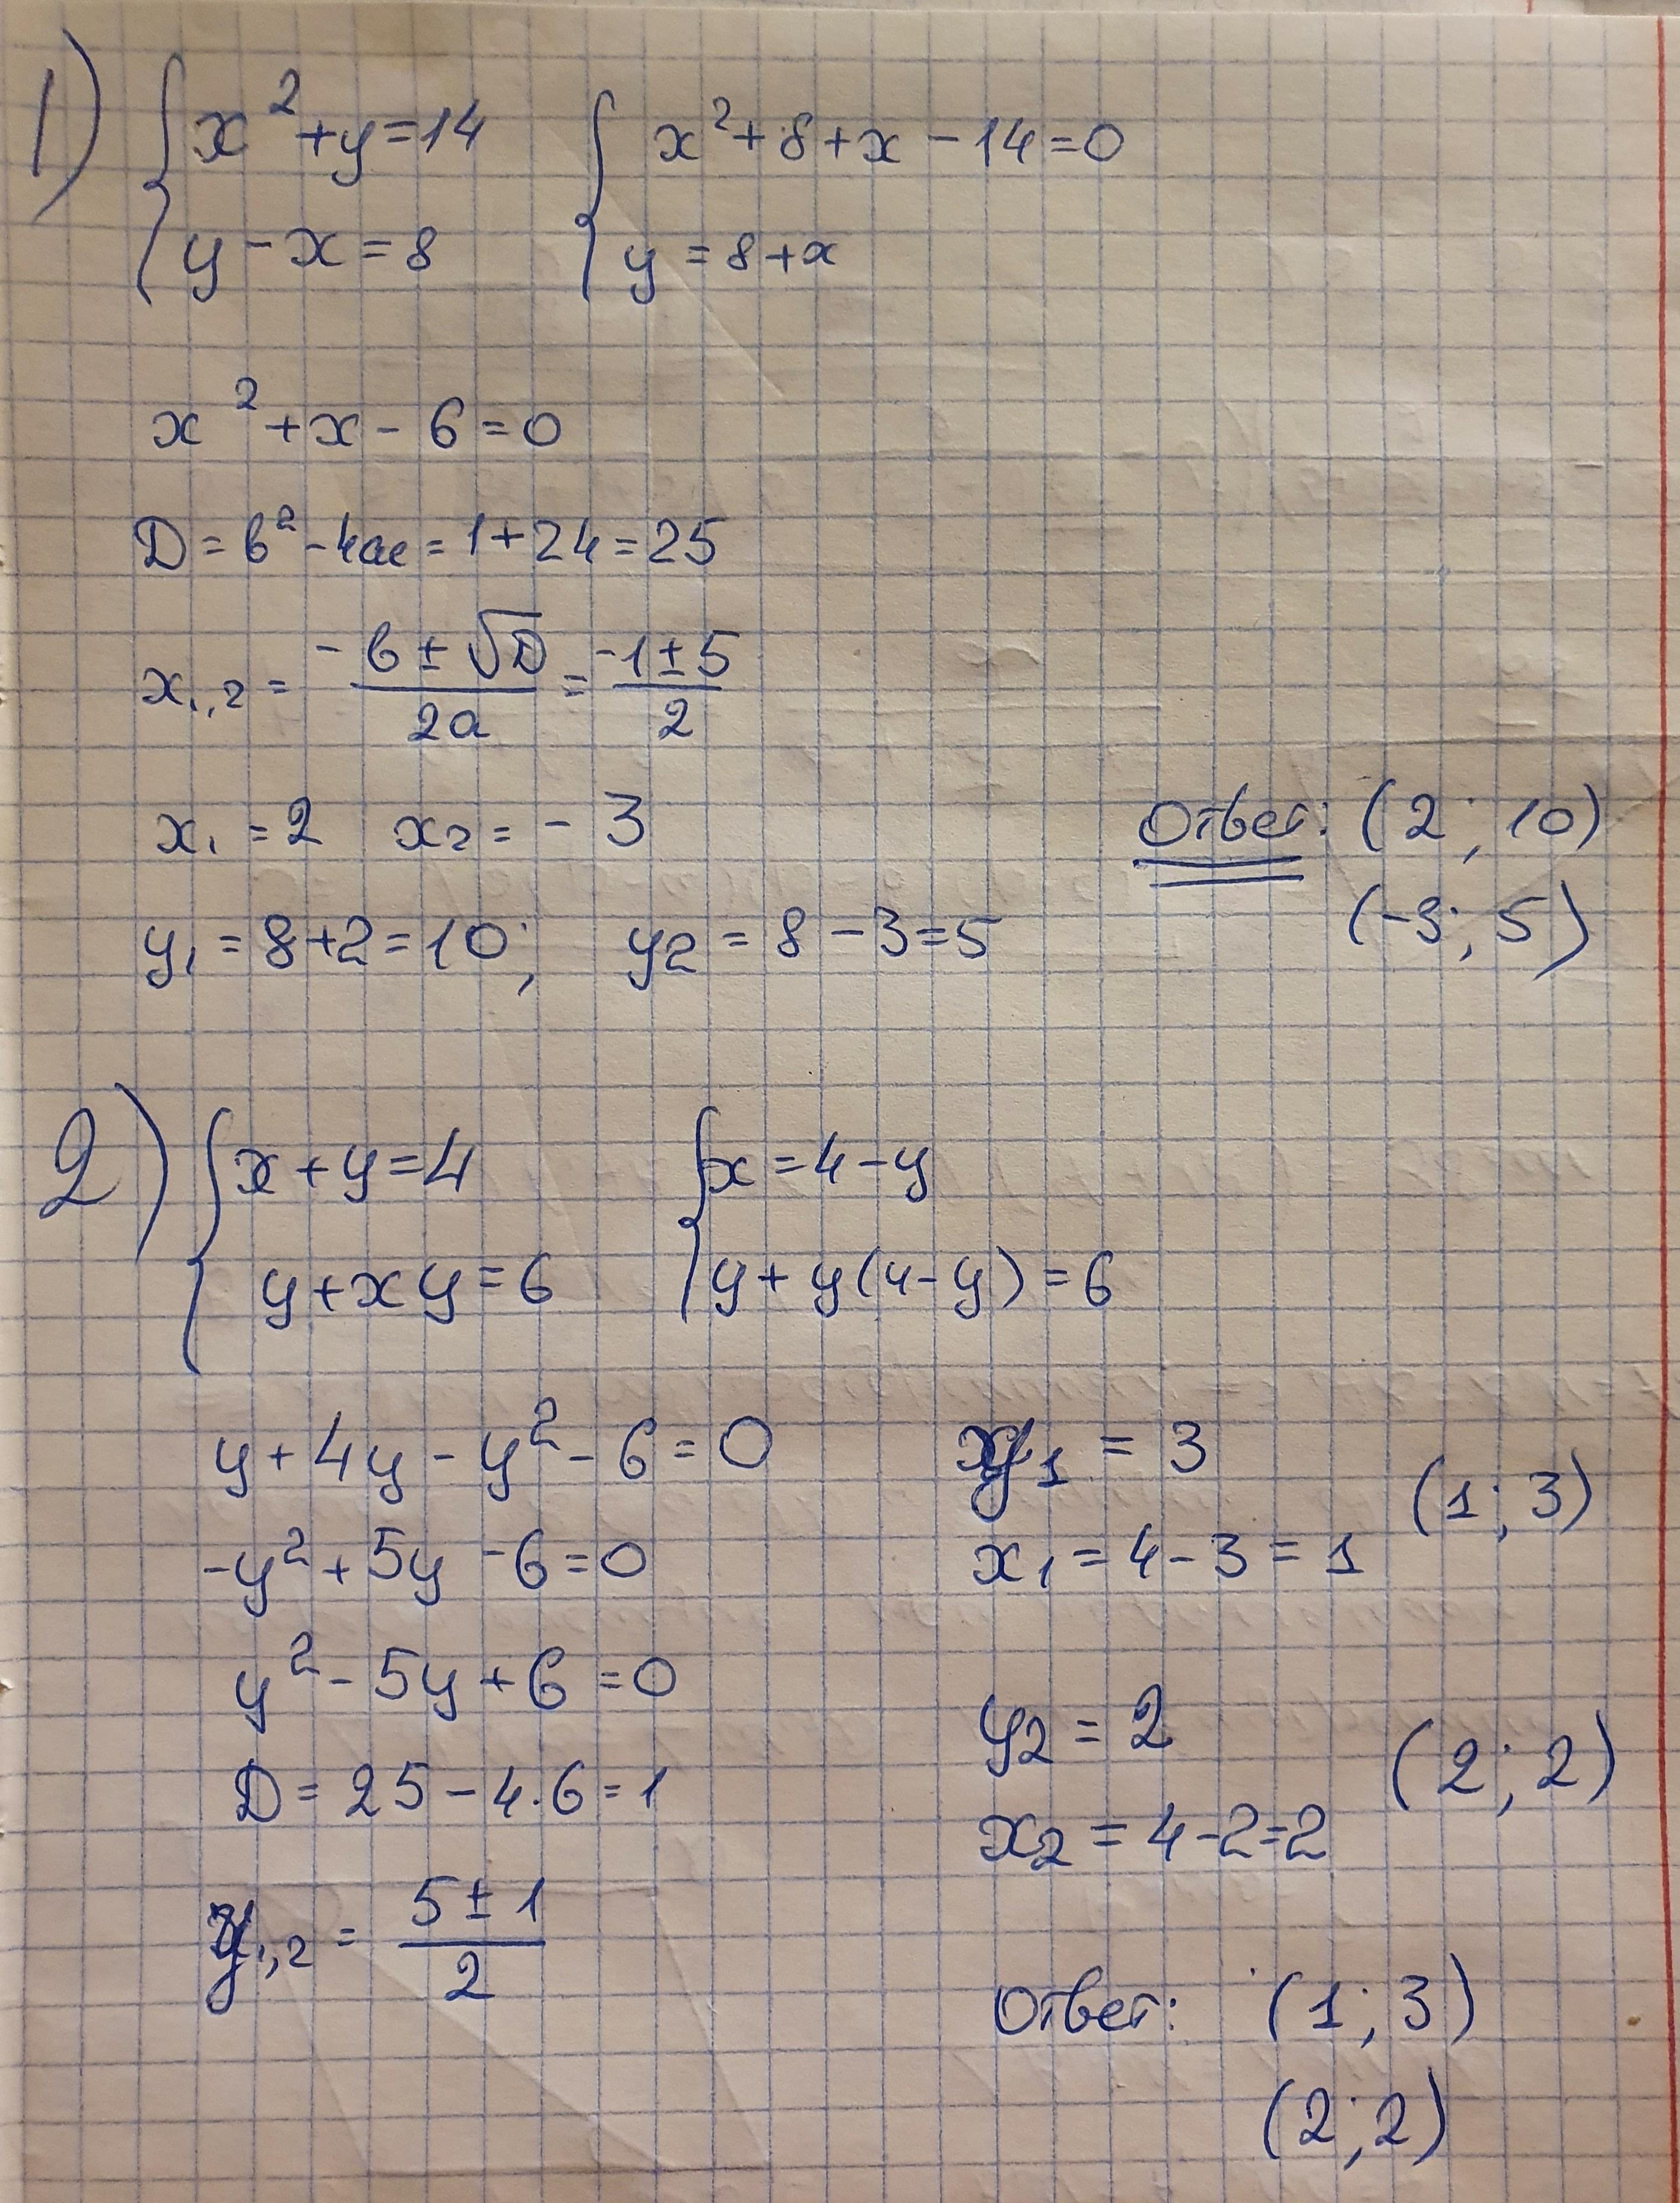 1) { x² + y = 14 { x² + 8 + x - 14 = 0
y - x = 8 y = 8 + x
x² + x - 6 = 0
D = b² - 4ac = 1 + 24 = 25
x₁,₂ = (-b ± √D)/(2a) = (-1 ± 5)/2
x₁ = 2 x₂ = -3
y₁ = 8 + 2 = 10; y₂ = 8 - 3 = 5
Ответ: (2; 10)
(-3; 5)
2) { x + y = 4 { x = 4 - y
y + xy = 6 y + y(4 - y) = 6
y + 4y - y² - 6 = 0
-y² + 5y - 6 = 0
y² - 5y + 6 = 0
D = 25 - 4·6 = 1
y₁,₂ = (5 ± 1)/2
y₁ = 3
x₁ = 4 - 3 = 1 (1; 3)
y₂ = 2
x₂ = 4 - 2 = 2 (2; 2)
Ответ: (1; 3)
(2; 2)